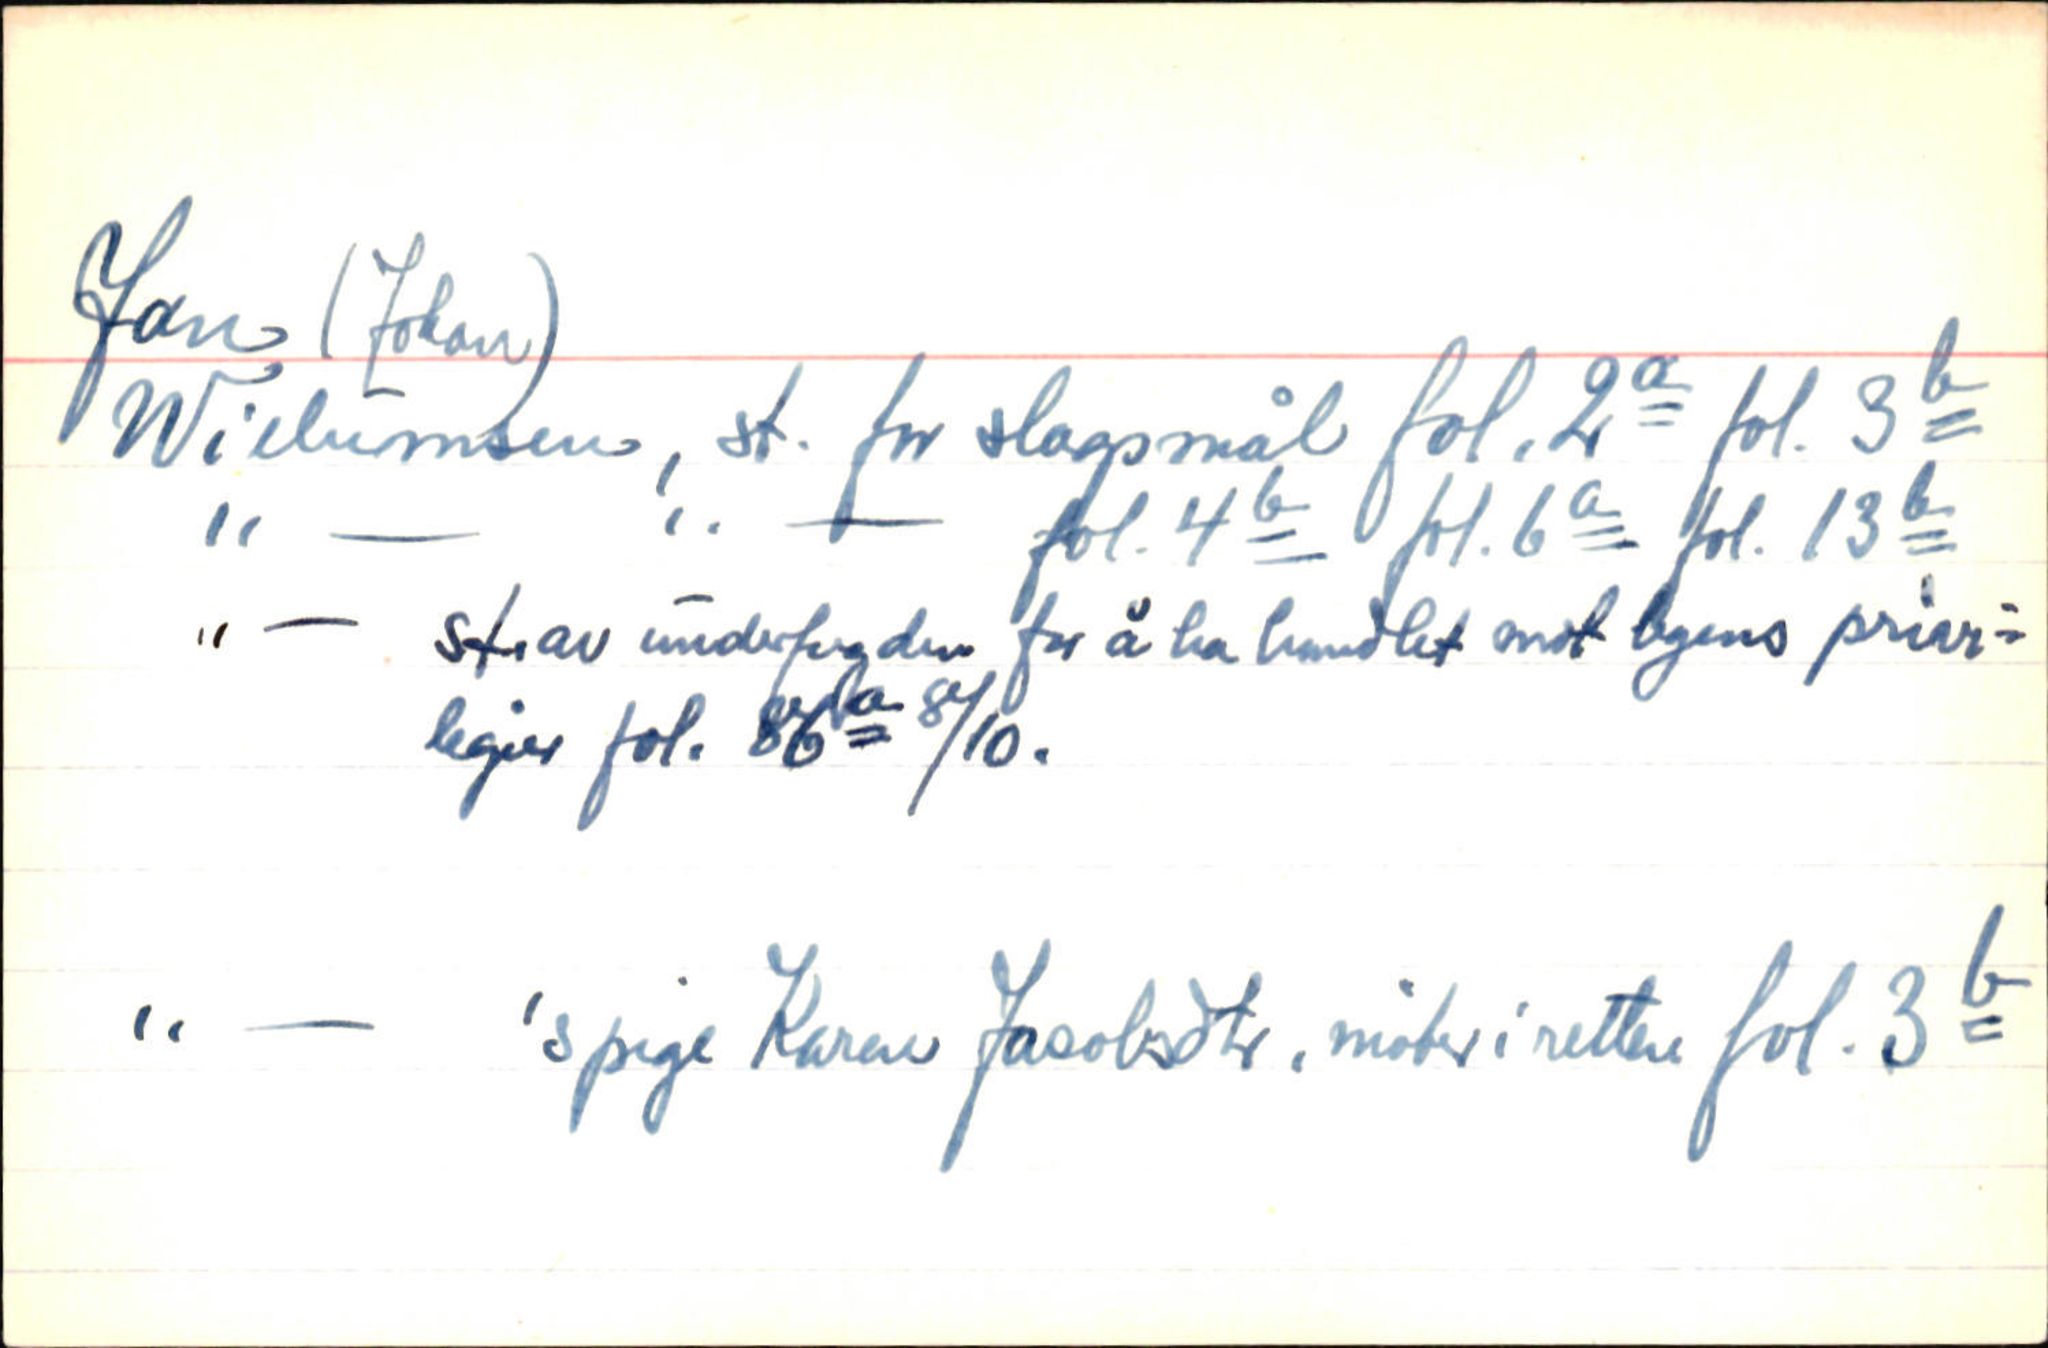 Jan (Johan)
Wielumsen, st. for slagsmål fol. 2a fol. 3b
" — " — fol. 4b fol. 6a fol. 13b
" — st. av underfogden for å ha handlet mot byens privi=
legier fol. 86a 8/10.
" — 's pige Karen Jacobsdtr, møter i retten fol. 3b